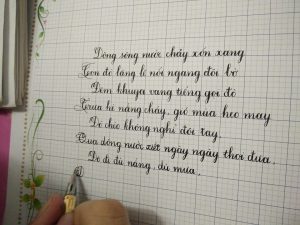 Dòng sông nước chảy xốn xang
Con đò lặng lẽ nối ngang đôi bờ
Đêm khuya vang tiếng gọi đò
Trưa hè nắng cháy, gió mùa heo may
Đò chiều không nghỉ đôi tay,
Qua dòng nước xiết ngày ngày thoi đưa.
Đò đi dù nắng, dù mưa,